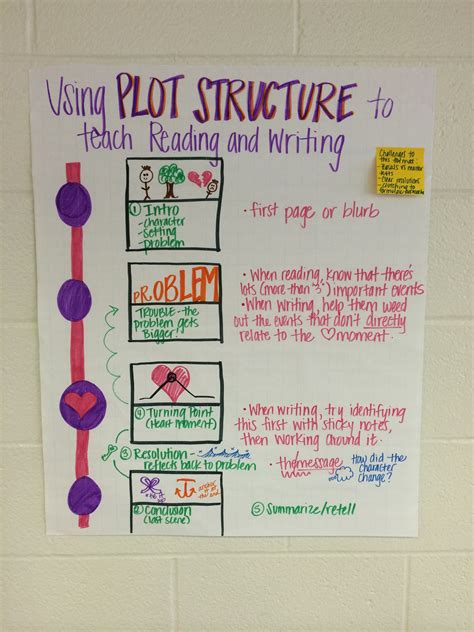 Using PLOT STRUCTURE to
teach Reading and Writing
Challenges to
this format:
① Intro
- character
- setting
- problem
• first page or blurb
PROBLEM
TROUBLE - the
problem gets
Bigger!
• When reading, know that there's
lots (more than "3") important events
• When writing, help them weed
out the events that don't directly
relate to the ♡ moment.
④ Turning Point
(Heart Moment)
• When writing, try identifying
this first with sticky notes,
then working around it.
③ Resolution -
reflects back to problem
• the message
How did the
character
change?
② Conclusion
(last scene)
⑤ Summarize/retell